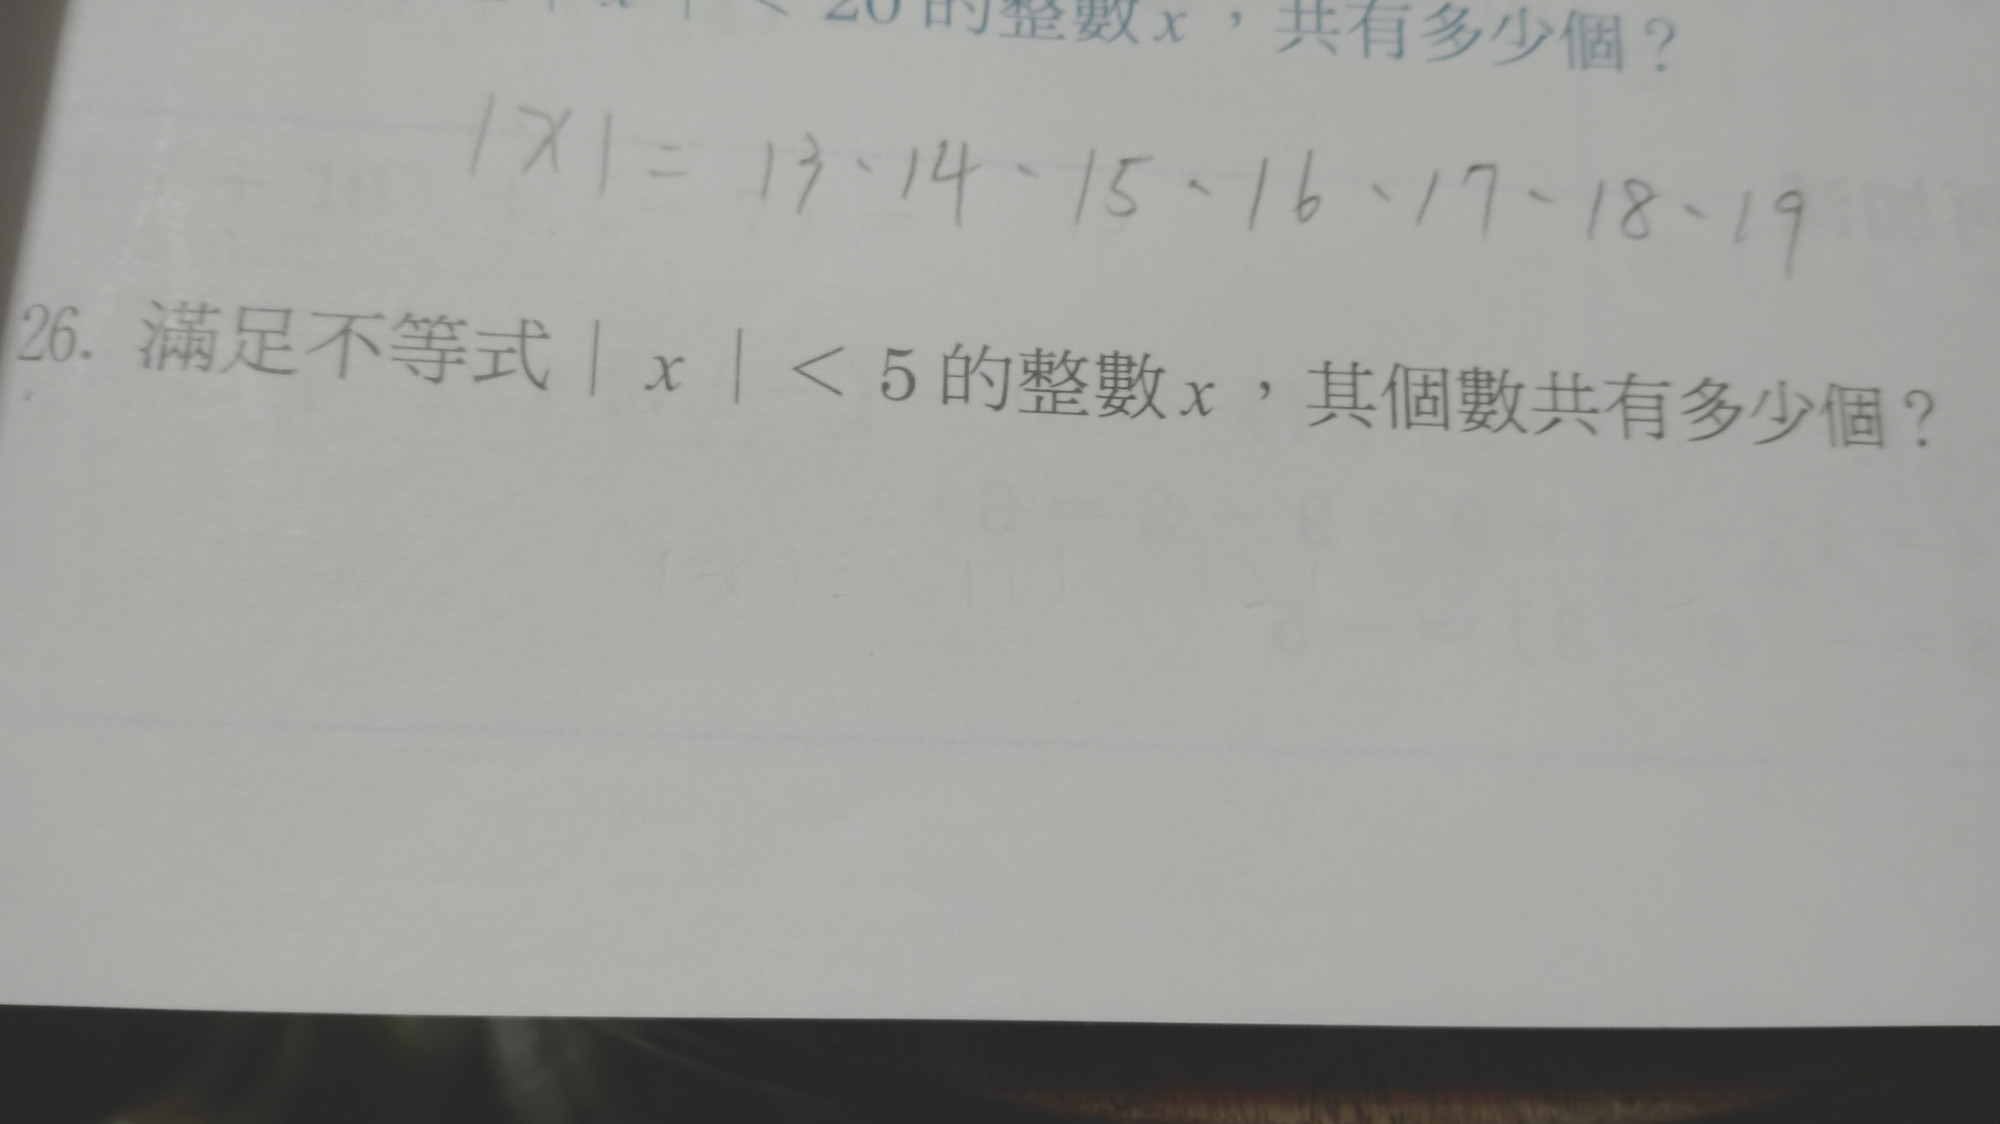 | x | < 20 的整數x，共有多少個？
|x| = 13、14、15、16、17、18、19
26. 滿足不等式| x | < 5 的整數x，其個數共有多少個？